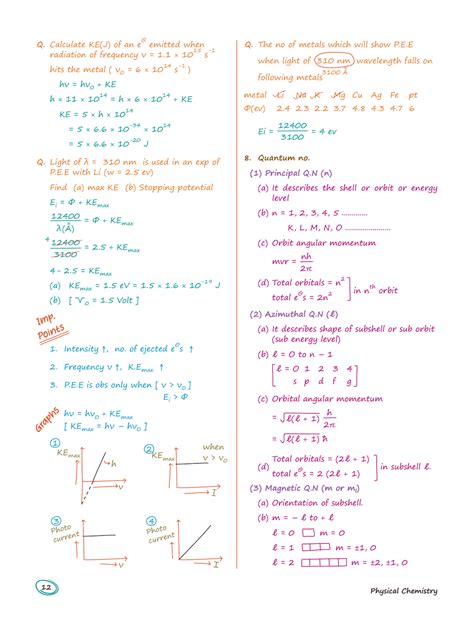 Q. Calculate KE(J) of an e⊖ emitted when
radiation of frequency ν = 1.1 × 10¹⁵ s⁻¹
hits the metal ( ν₀ = 6 × 10¹⁴ s⁻¹ )
hν = hν₀ + KE
h × 11 × 10¹⁴ = h × 6 × 10¹⁴ + KE
KE = 5 × h × 10¹⁴
= 5 × 6.6 × 10⁻³⁴ × 10¹⁴
= 5 × 6.6 × 10⁻²⁰ J
Q. Light of λ = 310 nm is used in an exp of
P.E.E with Li (w = 2.5 ev)
Find (a) max KE (b) Stopping potential
Eᵢ = Φ + KEmax
12400 / λ(Å) = Φ + KEmax
4 12400 / 3100 = 2.5 + KEmax
4 – 2.5 = KEmax
(a) KEmax = 1.5 eV = 1.5 × 1.6 × 10⁻¹⁹ J
(b) [ V₀ = 1.5 Volt ]
Imp.
Points
1. Intensity ↑, no. of ejected e⊖s ↑
2. Frequency ν ↑, K.Emax ↑
3. P.E.E is obs only when [ ν > ν₀ ]
Eᵢ > Φ
Graphs
hν = hν₀ + KEmax
[ KEmax = hν – hν₀ ]
1
KEmax
h
ν
2
KEmax
when
ν > ν₀
I
3
Photo
current
ν
4
Photo
current
I
12
Q. The no of metals which will show P.E.E
when light of 310 nm wavelength falls on
3100 Å
following metals
metal Li Na K Mg Cu Ag Fe pt
Φ(ev) 2.4 2.3 2.2 3.7 4.8 4.3 4.7 6
Ei = 12400 / 3100 = 4 ev
8. Quantum no.
(1) Principal Q.N (n)
(a) It describes the shell or orbit or energy
level
(b) n = 1, 2, 3, 4, 5 .............
K, L, M, N, O ............
(c) Orbit angular momentum
mvr = nh / 2π
(d) Total orbitals = n²
total e⊖s = 2n²
in nᵗʰ orbit
(2) Azimuthal Q.N (ℓ)
(a) It describes shape of subshell or sub orbit
(sub energy level)
(b) ℓ = 0 to n – 1
ℓ = 0 1 2 3 4
s p d f g
(c) Orbital angular momentum
= √ℓ(ℓ + 1) h / 2π
= √ℓ(ℓ + 1) ħ
(d) Total orbitals = (2ℓ + 1)
total e⊖s = 2 (2ℓ + 1)
in subshell ℓ.
(3) Magnetic Q.N (m or mₗ)
(a) Orientation of subshell.
(b) m = – ℓ to + ℓ
ℓ = 0 m = 0
ℓ = 1 m = ±1, 0
ℓ = 2 m = ±2, ±1, 0
Physical Chemistry